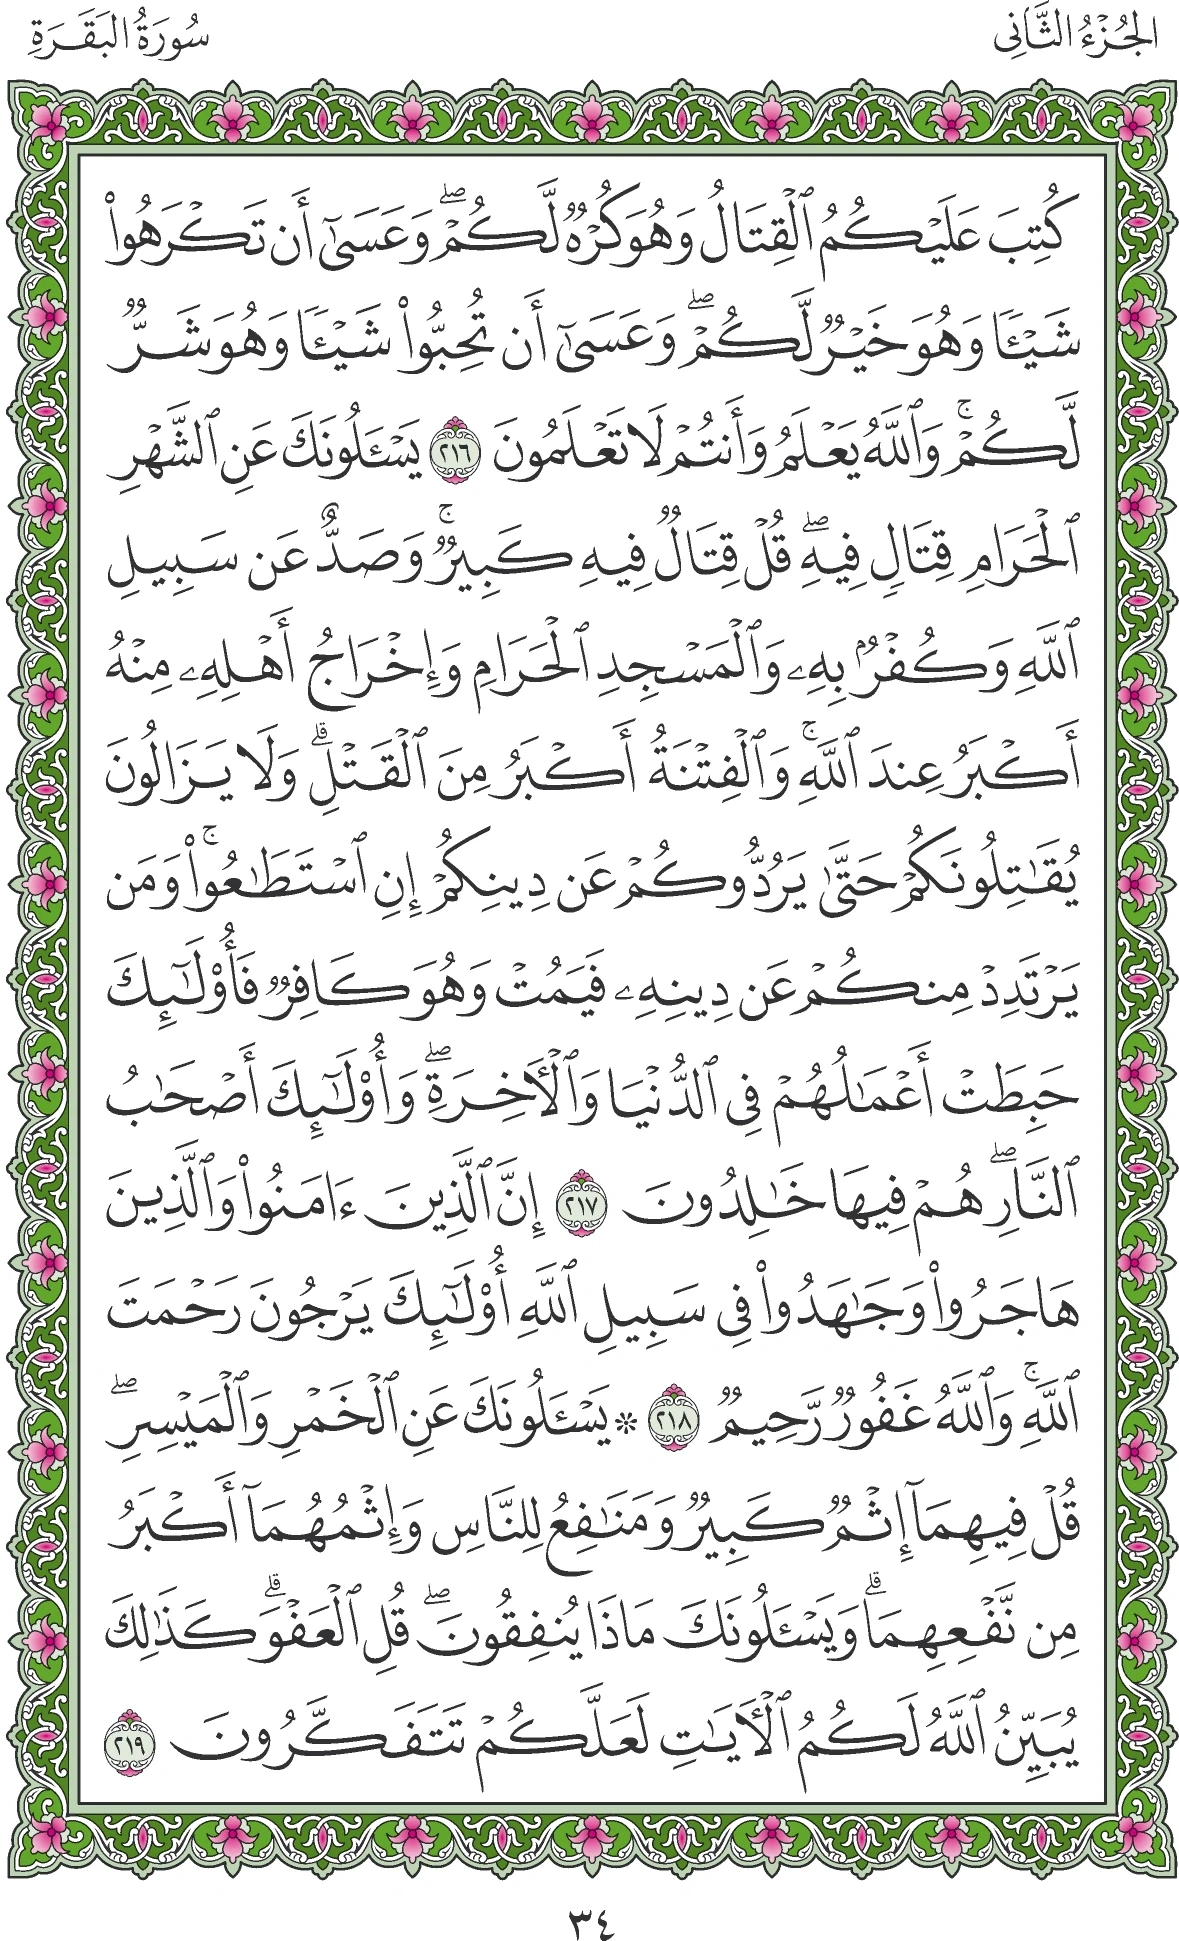 الجُزْءُ الثَّانِي
سُورَةُ البَقَرَةِ
كُتِبَ عَلَيْكُمُ ٱلْقِتَالُ وَهُوَ كُرْهٌ لَّكُمْ ۖ وَعَسَىٰٓ أَن تَكْرَهُوا۟
شَيْـًٔا وَهُوَ خَيْرٌ لَّكُمْ ۖ وَعَسَىٰٓ أَن تُحِبُّوا۟ شَيْـًٔا وَهُوَ شَرٌّ
لَّكُمْ ۚ وَٱللَّهُ يَعْلَمُ وَأَنتُمْ لَا تَعْلَمُونَ ٢١٦ يَسْـَٔلُونَكَ عَنِ ٱلشَّهْرِ
ٱلْحَرَامِ قِتَالٍ فِيهِ ۖ قُلْ قِتَالٌ فِيهِ كَبِيرٌ ۚ وَصَدٌّ عَن سَبِيلِ
ٱللَّهِ وَكُفْرٌۢ بِهِۦ وَٱلْمَسْجِدِ ٱلْحَرَامِ وَإِخْرَاجُ أَهْلِهِۦ مِنْهُ
أَكْبَرُ عِندَ ٱللَّهِ ۚ وَٱلْفِتْنَةُ أَكْبَرُ مِنَ ٱلْقَتْلِ ۗ وَلَا يَزَالُونَ
يُقَـٰتِلُونَكُمْ حَتَّىٰ يَرُدُّوكُمْ عَن دِينِكُمْ إِنِ ٱسْتَطَـٰعُوا۟ ۚ وَمَن
يَرْتَدِدْ مِنكُمْ عَن دِينِهِۦ فَيَمُتْ وَهُوَ كَافِرٌ فَأُو۟لَـٰٓئِكَ
حَبِطَتْ أَعْمَـٰلُهُمْ فِى ٱلدُّنْيَا وَٱلْـَٔاخِرَةِ ۖ وَأُو۟لَـٰٓئِكَ أَصْحَـٰبُ
ٱلنَّارِ ۖ هُمْ فِيهَا خَـٰلِدُونَ ٢١٧ إِنَّ ٱلَّذِينَ ءَامَنُوا۟ وَٱلَّذِينَ
هَاجَرُوا۟ وَجَـٰهَدُوا۟ فِى سَبِيلِ ٱللَّهِ أُو۟لَـٰٓئِكَ يَرْجُونَ رَحْمَتَ
ٱللَّهِ ۚ وَٱللَّهُ غَفُورٌ رَّحِيمٌ ٢١٨ ۞ يَسْـَٔلُونَكَ عَنِ ٱلْخَمْرِ وَٱلْمَيْسِرِ ۖ
قُلْ فِيهِمَآ إِثْمٌ كَبِيرٌ وَمَنَـٰفِعُ لِلنَّاسِ وَإِثْمُهُمَآ أَكْبَرُ
مِن نَّفْعِهِمَا ۗ وَيَسْـَٔلُونَكَ مَاذَا يُنفِقُونَ ۖ قُلِ ٱلْعَفْوَ ۗ كَذَٰلِكَ
يُبَيِّنُ ٱللَّهُ لَكُمُ ٱلْـَٔايَـٰتِ لَعَلَّكُمْ تَتَفَكَّرُونَ ٢١٩
٣٤